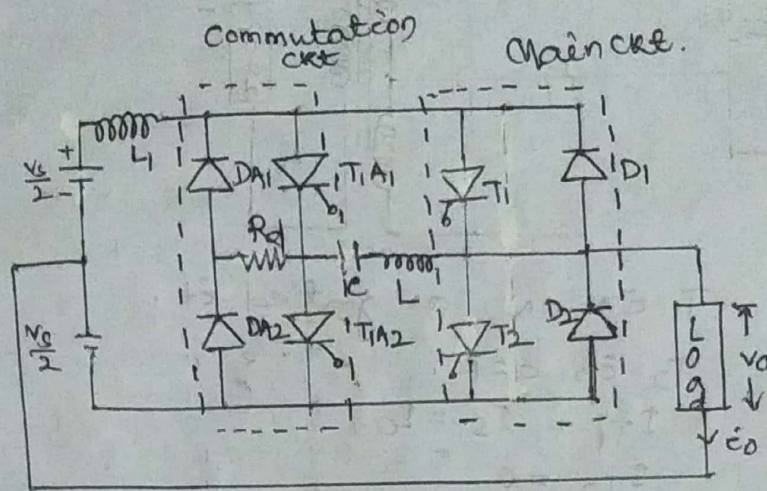 Commutation
ckt
Main ckt.
+
L1
Vs/2
-
DA1
T1A1
T1
D1
Rd
C
L
Vs/2
DA2
T1A2
T2
D2
Load
vo
io